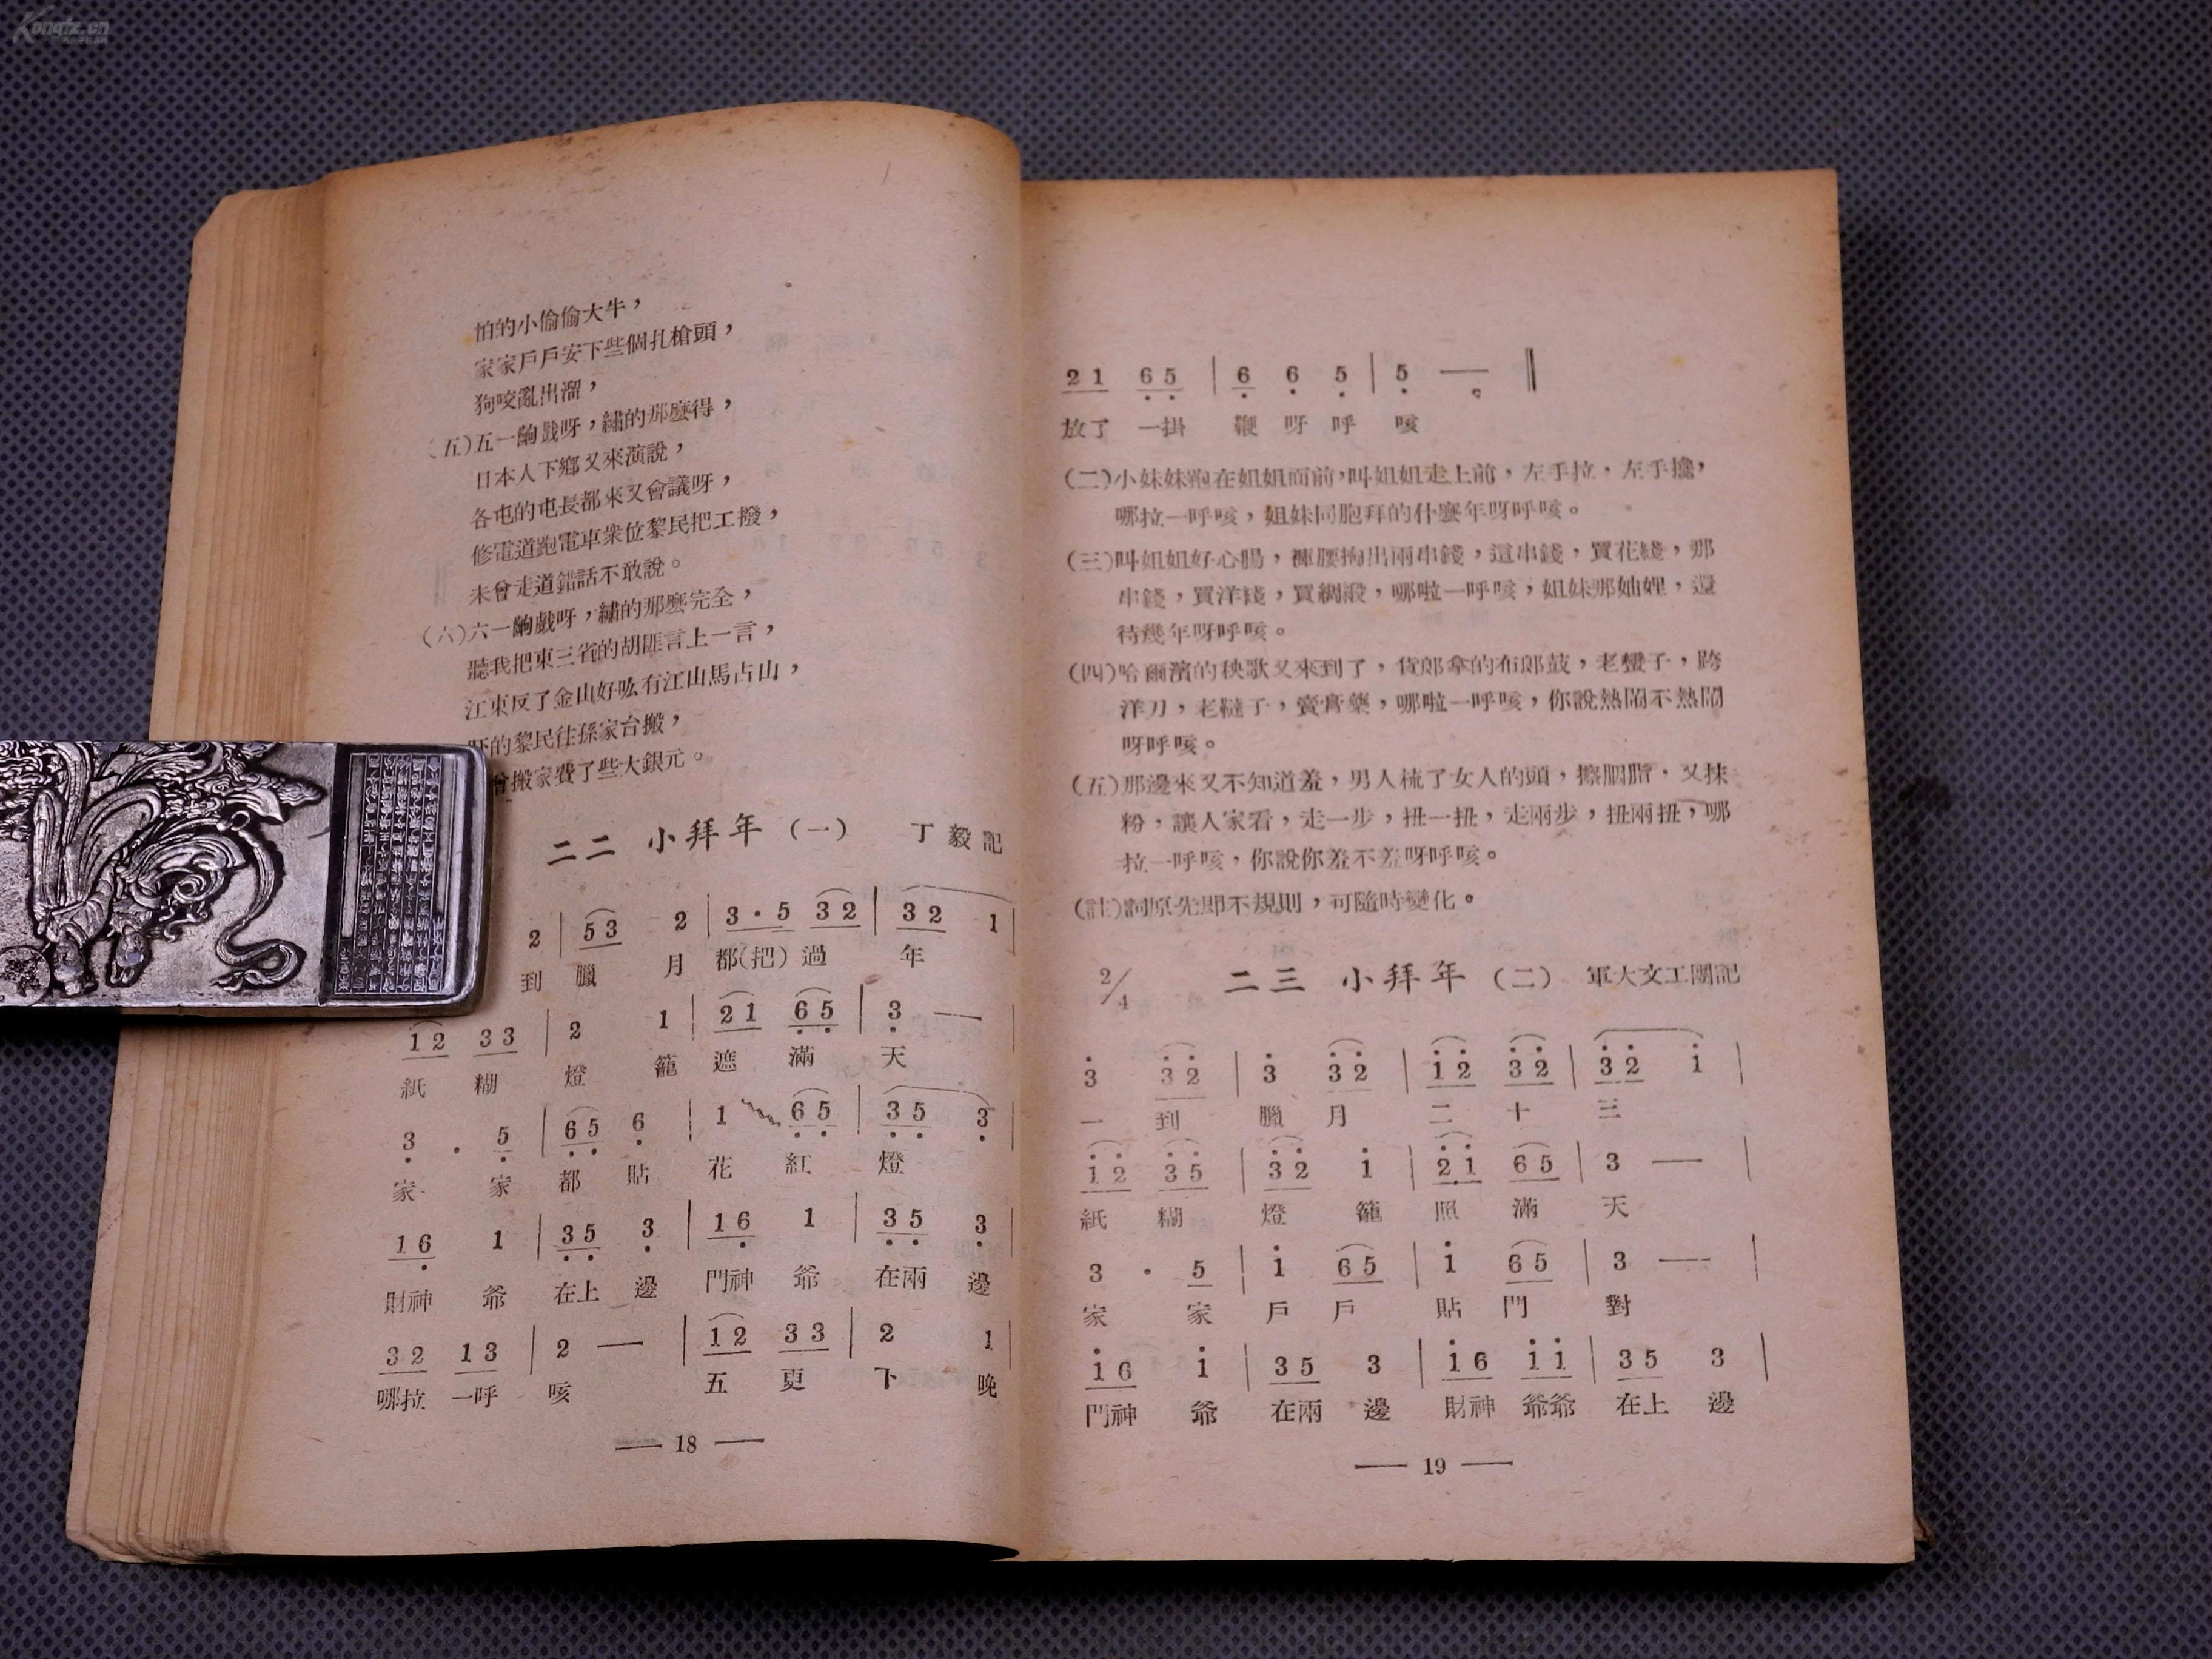 Kongfz.cn
怕的小偷偷大牛，
家家戶戶安下些個扎槍頭，
狗咬亂出溜，
（五）五一齣戲呀，繡的那麼得，
日本人下鄉又來演說，
各屯的屯長都來又會議呀，
修電道跑電車衆位黎民把工撥，
未曾走道錯話不敢說。
（六）六一齣戲呀，繡的那麼完全，
聽我把東三省的胡匪言上一言，
江東反了金山好吆有江山馬占山，
的黎民往孫家台搬，
曾搬家費了些大銀元。
二二 小拜年（一） 丁毅記
2 | 5 3 2 | 3 · 5 3 2 | 3 2 1 |
到 臘 月 都（把）過 年
1 2 3 3 | 2 1 | 2 1 6 5 | 3 —
紙 糊 燈 籠 遮 滿 天
3 · 5 | 6 5 6 | 1 6 5 | 3 5 3 |
家 家 都 貼 花 紅 燈
1 6 1 | 3 5 3 | 1 6 1 | 3 5 3 |
財神 爺 在上 邊 門神 爺 在兩 邊
3 2 1 3 | 2 — | 1 2 3 3 | 2 1 |
哪拉 一呼 咳 五 更 下 晚
— 18 —
2 1 6 5 | 6 6 5 | 5 — ‖
放了 一掛 鞭 呀 呼 咳
（二）小妹妹跑在姐姐面前，叫姐姐走上前，左手拉，左手攙，
哪拉一呼咳，姐妹同胞拜的什麼年呀呼咳。
（三）叫姐姐好心腸，褲腰掏出兩串錢，這串錢，買花綫，那
串錢，買洋綫，買綢緞，哪啦一呼咳，姐妹那妯娌，還
待幾年呀呼咳。
（四）哈爾濱的秧歌又來到了，貨郎拿的布郎鼓，老蠻子，跨
洋刀，老韃子，賣膏藥，哪啦一呼咳，你說熱鬧不熱鬧
呀呼咳。
（五）那邊來又不知道羞，男人梳了女人的頭，擦胭脂，又抹
粉，讓人家看，走一步，扭一扭，走兩步，扭兩扭，哪
拉一呼咳，你說你羞不羞呀呼咳。
（註）詞原先即不規則，可隨時變化。
2/4 二三 小拜年（二） 軍大文工團記
3 3 2 | 3 3 2 | 1 2 3 2 | 3 2 1 |
一 到 臘 月 二 十 三
1 2 3 5 | 3 2 1 | 2 1 6 5 | 3 — |
紙 糊 燈 籠 照 滿 天
3 · 5 | 1 6 5 | 1 6 5 | 3 — |
家 家 戶 戶 貼 門 對
1 6 1 | 3 5 3 | 1 6 1 1 | 3 5 3 |
門神 爺 在兩 邊 財神 爺爺 在上 邊
— 19 —